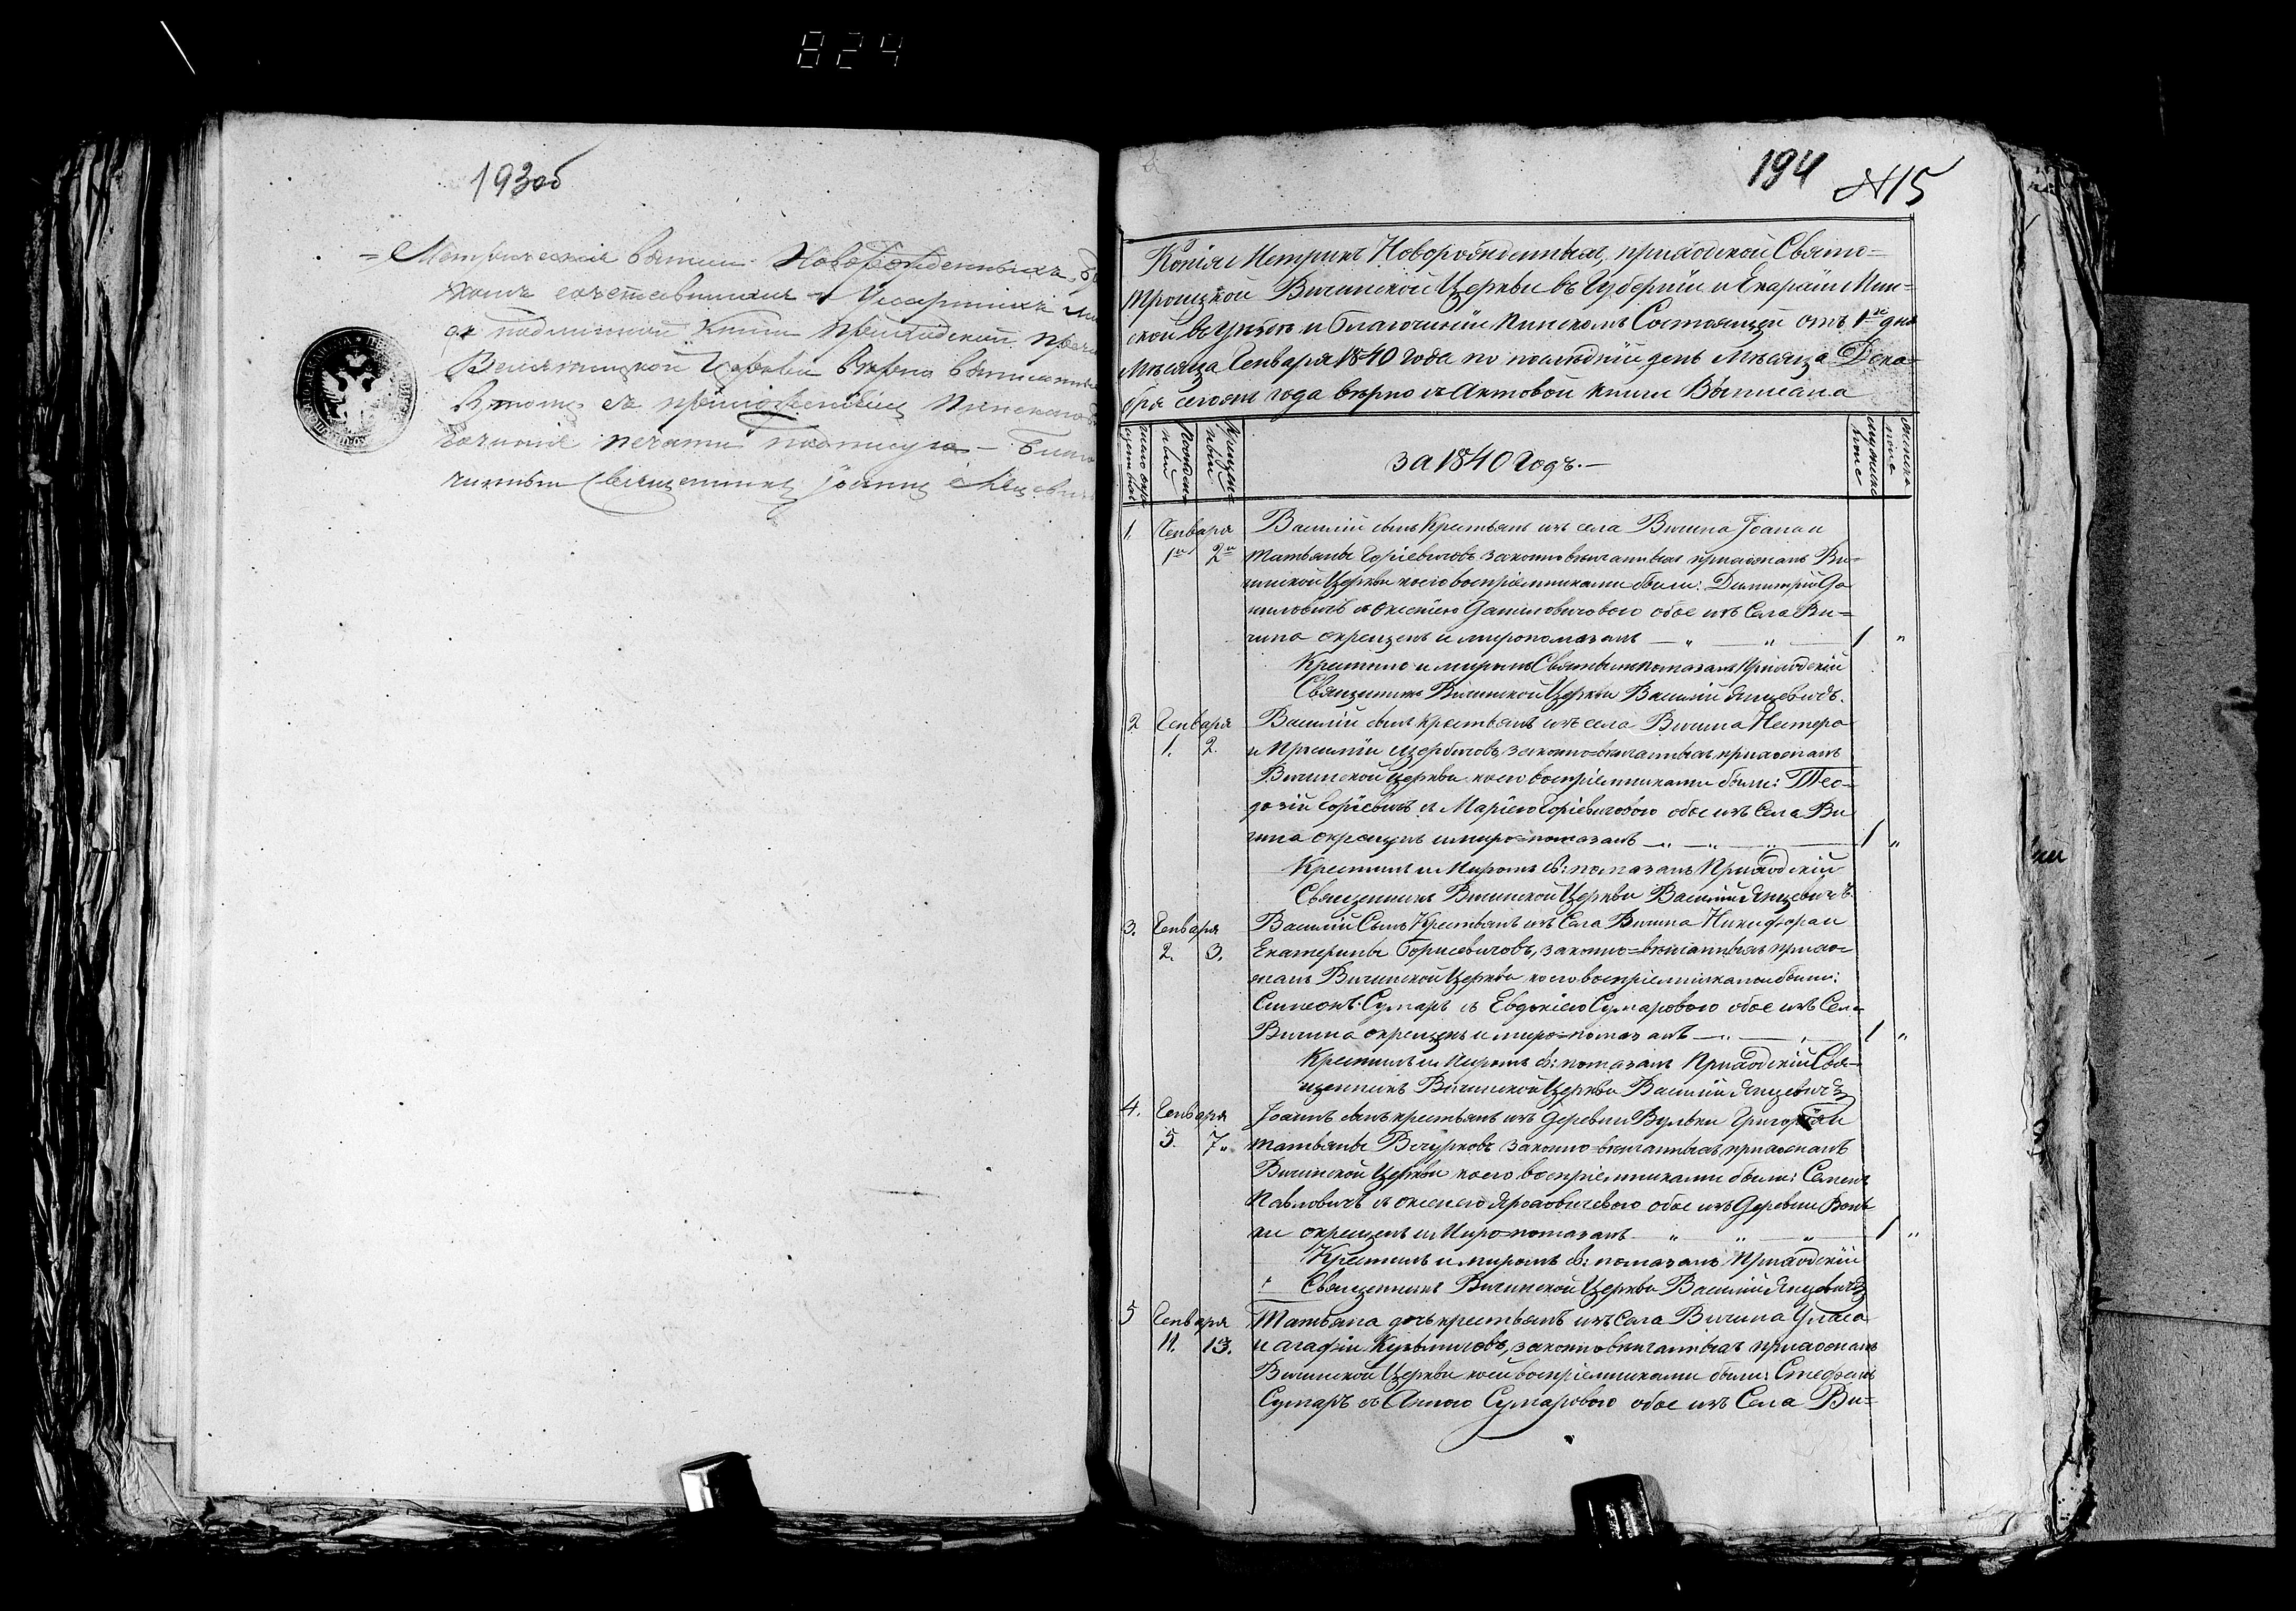 824
193об
= Метрическія выписи Новорожденныхъ
комъ сочетавшихся и Умершихъ
съ подлинной книги Приходской
Велятицкой Церкви вѣрно выписаны
Въ томъ съ приложеніемъ Пинскаго
гочинія печати подписуюсь — Благо
чинный Священникъ Іоаннъ
194 №15
Копія Метрикъ Новорожденныхъ, приходской Свято=
Троицкой Вичинской Церкви въ Губерніи и Епархіи Мин=
ской въ уѣздѣ и благочиніи Пинскомъ Состоящей отъ 1го дня
Мѣсяца Генваря 1840 года по послѣдній день мѣсяца Дека=
бря сего года вѣрно съ Актовой книги Выписана
число
Рожденный
Крещеный
За 1840 Годъ. —
мужеска пола
женска пола
1. Генваря Василій сынъ Крестьянъ изъ села Вичина Іоана и
1го 2го Татьяны законновѣнчанныхъ прихожанъ Ви=
чинской Церкви коего воспріемниками были: Димитрій Да
ниловичъ съ Ксеніею Даниловичовою обое изъ Села Ви=
чина окрещенъ и миропомазанъ — „ „ — 1 „
Крестилъ и миромъ Святымъ помазалъ Приходскій
Священникъ Вичинской Церкви Василій Янцевичъ.
2 Генваря Василій сынъ крестьянъ изъ села Вичина Нестера
1. 2. и законно=вѣнчанныхъ прихожанъ
Вичинской Церкви коего воспріемниками были: Тео=
дозій съ Маріею обое изъ Села Ви
чина окрещенъ и миро=помазанъ — „ — „ — „ — 1 „
Крестилъ и Миромъ С: помазалъ Приходскій
Священникъ Вичинской Церкви Василій Янцевичъ.
3. Генваря Василій Сынъ Крестьянъ изъ Села Вичина Никифора и
2. 3. Екатерины Борисевичовъ, законно=вѣнчанныхъ прихо=
жанъ Вичинской Церкви коего воспріемниками были:
Симеонъ Сумаръ съ Евдокіею Сумаровою обое изъ Села
Вичина окрещенъ и миро=помазанъ — „ — „ — 1 „
Крестилъ и Миромъ С: помазалъ Приходскій Свя=
щенникъ Вичинской Церкви Василій Янцевичъ
4. Генваря Іоаннъ сынъ крестьянъ изъ деревни Вульки Григорія и
5. 7. Татьяны законно=вѣнчанныхъ прихожанъ
Вичинской Церкви коего воспріемниками были: Семенъ
Павловичъ съ Ксенею обое изъ Деревни Воль
ки окрещенъ и Миро=помазанъ „ „ „ — 1 „
Крестилъ и миромъ С: помазалъ Приходскій
Священникъ Вичинской Церкви Василій Янцевичъ
5 Генваря Татьяна дочь крестьянъ изъ Села Вичина Уласа
11. 13. и Агафіи Кузьмичовъ, законновѣнчанныхъ прихожанъ
Вичинской Церкви коей воспріемниками были: Стефанъ
Сумаръ съ Анною Сумаровою обое изъ Села Ви=